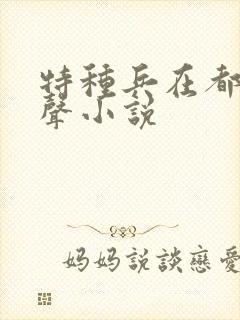 特種兵在都
聲小説
妈妈説談戀愛